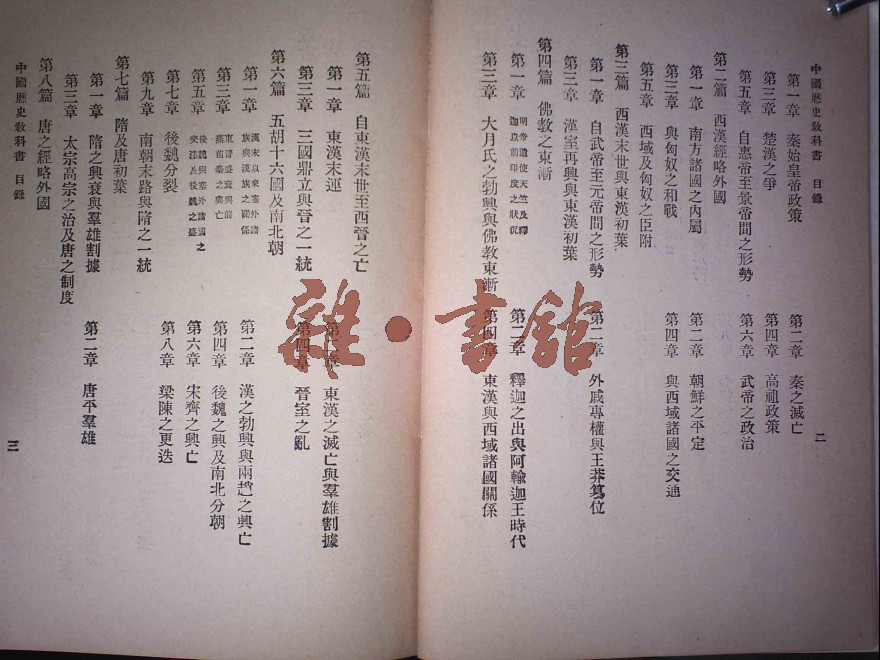 中國歷史教科書 目錄 二
第一章 秦始皇帝政策 第二章 秦之滅亡
第三章 楚漢之爭 第四章 高祖政策
第五章 自惠帝至景帝間之形勢 第六章 武帝之政治
第二篇 西漢經略外國
第一章 南方諸國之內屬 第二章 朝鮮之平定
第三章 與匈奴之和戰 第四章 與西域諸國之交通
第五章 西域及匈奴之臣附
第三篇 西漢末世與東漢初葉
第一章 自武帝至元帝間之形勢 第二章 外戚專權與王莽篡位
第三章 漢室再興與東漢初葉
第四篇 佛教之東漸
第一章 明帝遣使天竺及釋迦以前印度之狀況 第二章 釋迦之出與阿輸迦王時代
第三章 大月氏之勃興與佛教東漸 第四章 東漢與西域諸國關係
第五篇 自東漢末世至西晉之亡
第一章 東漢末運 第二章 東漢之滅亡與羣雄割據
第三章 三國鼎立與晉之一統 第四章 晉室之亂
第六篇 五胡十六國及南北朝
第一章 漢末以來塞外諸族與漢族之關係 第二章 漢之勃興與兩趙之興亡
第三章 東晉盛衰與前燕前秦之興亡 第四章 後魏之興及南北分朝
第五章 後魏與塞外諸國之交涉及後魏之盛 第六章 宋齊之興亡
第七章 後魏分裂 第八章 梁陳之更迭
第九章 南朝末路與隋之一統
第七篇 隋及唐初葉
第一章 隋之興衰與羣雄割據 第二章 唐平羣雄
第三章 太宗高宗之治及唐之制度
第八篇 唐之經略外國
中國歷史教科書 目錄 三
雜·書舘